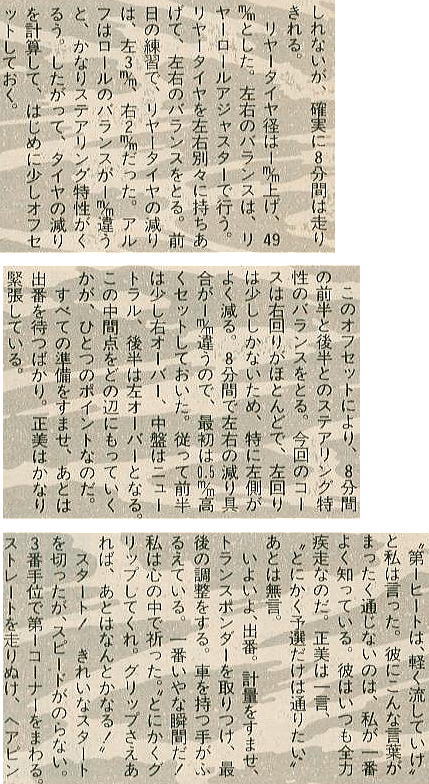 しれないが、確実に8分間は走り
きれる。
　リヤータイヤ径は1㎜上げ、49
㎜とした。左右のバランスは、リ
ヤーロールアジャスターで行う。
リヤータイヤを左右別々に持ちあ
げて、左右のバランスをとる。前
日の練習で、リヤータイヤの減り
は、左3㎜、右2㎜だった。アル
フはロールのバランスが1㎜違う
と、かなりステアリング特性がく
るう。したがって、タイヤの減り
を計算して、はじめに少しオフセ
ットしておく。
　このオフセットにより、8分間
の前半と後半とのステアリング特
性のバランスをとる。今回のコー
スは右回りがほとんどで、左回り
は少ししかないため、特に左側が
よく減る。8分間で左右の減り具
合が1㎜違うので、最初は0.5㎜高
くセットしておいた。従って前半
は少し右オーバー、中盤はニュー
トラル、後半は左オーバーとなる。
この中間点をどの辺にもっていく
かが、ひとつのポイントなのだ。
　すべての準備をすませ、あとは
出番を待つばかり。正美はかなり
緊張している。
〝第一ヒートは、軽く流していけ〟
と私は言った。彼にこんな言葉が
まったく通じないのは、私が一番
よく知っている。彼はいつも全力
疾走なのだ。正美は一言、
〝とにかく予選だけは通りたい〟
あとは無言。
　いよいよ、出番。計量をすませ、
トランスポンダーを取りつけ、最
後の調整をする。車を持つ手がふ
るえている。一番いやな瞬間だ！
私は心の中で祈った。〝とにかくグ
リップしてくれ。グリップさえあ
れば、あとはなんとかなる〟
　スタート！　きれいなスタート
を切ったが、スピードがのらない。
3番手位で第1コーナーをまわる。
ストレートを走りぬけ、ヘアピン